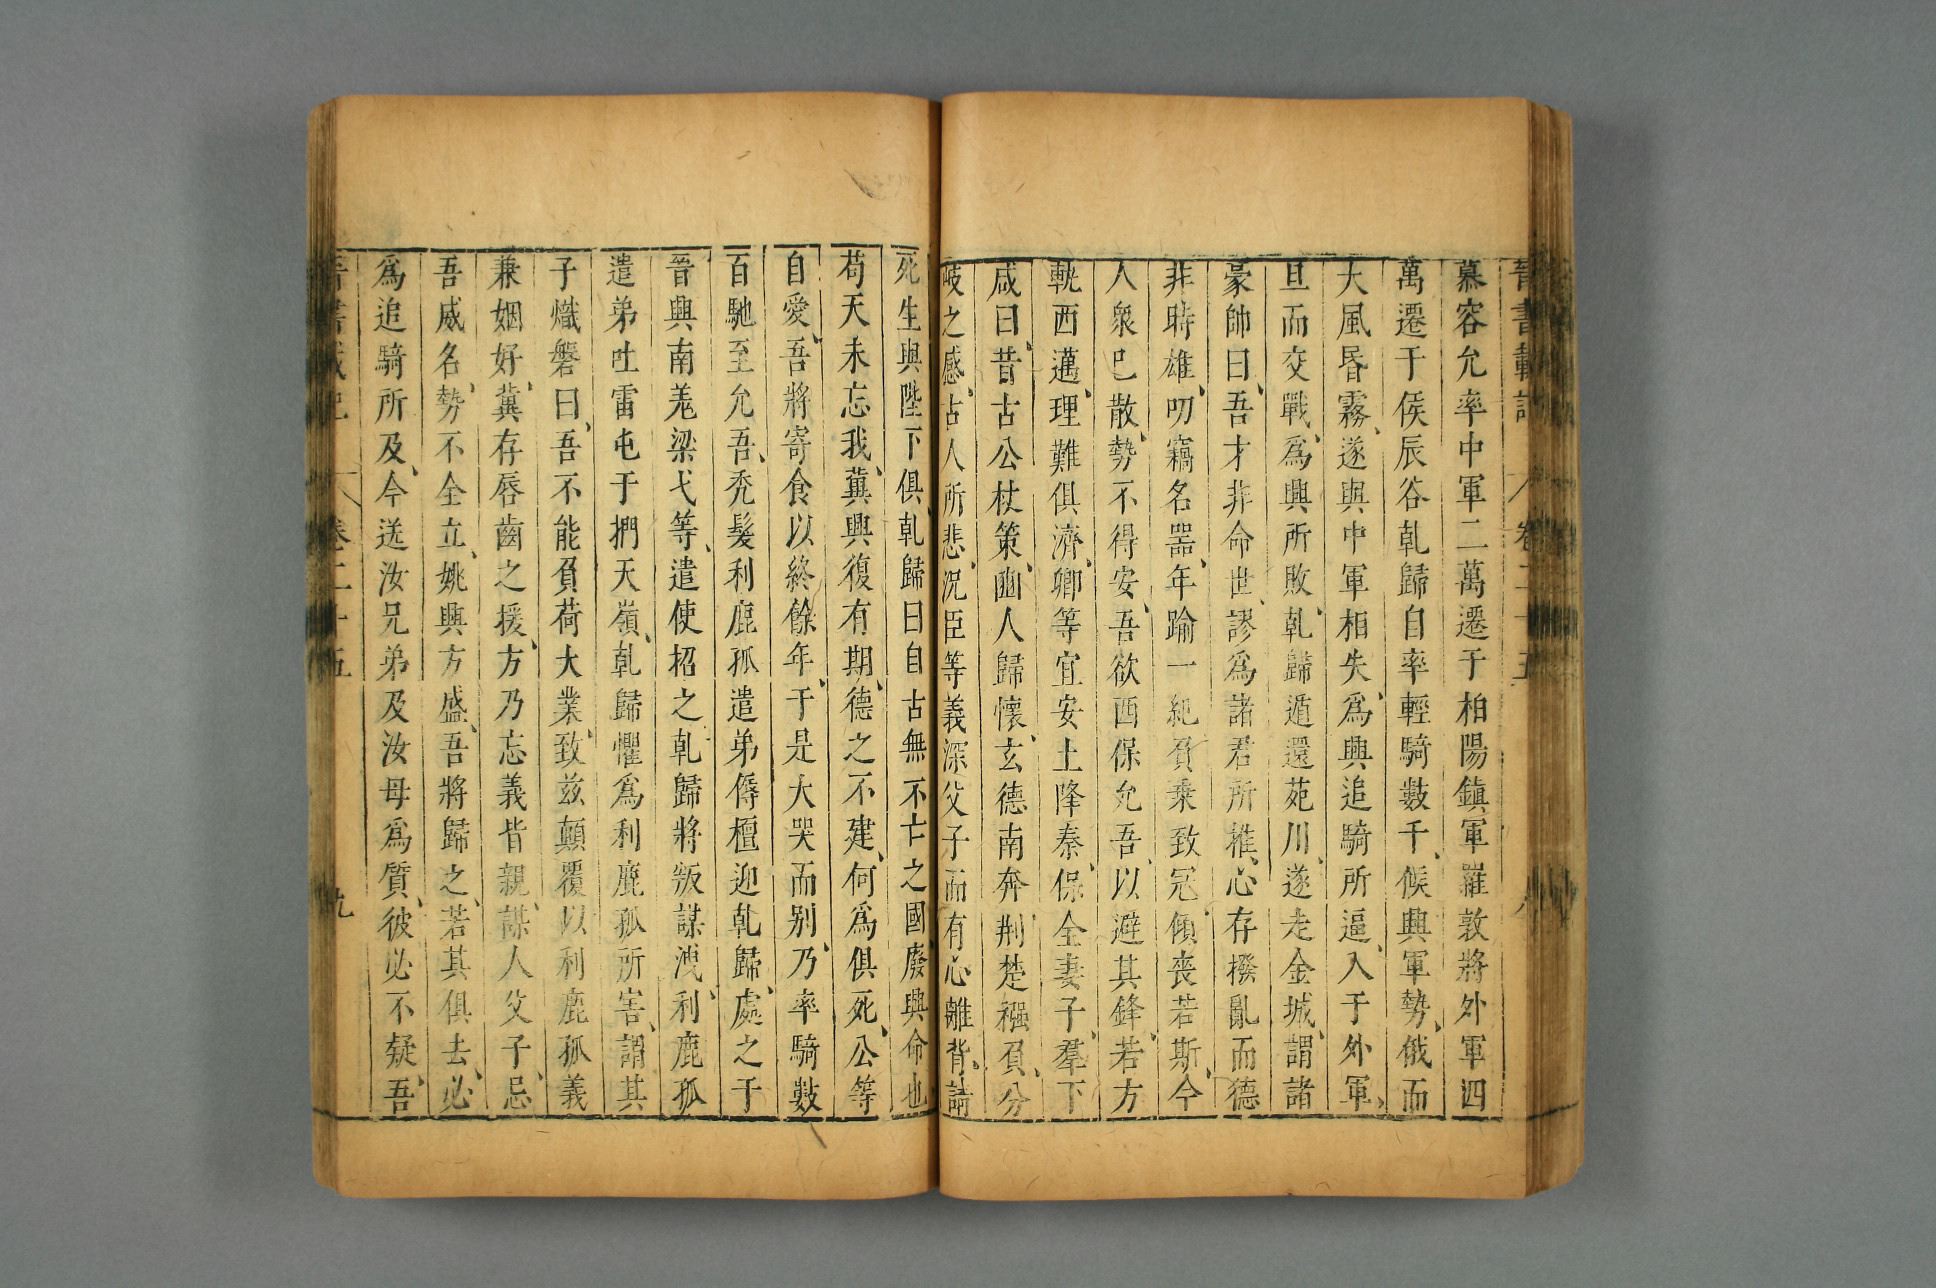 晉書載記 卷二十五 八
慕容允率中軍二萬遷于柏陽鎮軍羅敦將外軍四
萬遷于侯辰谷乹歸自率輕騎數千候興軍勢俄而
大風昏霧遂與中軍相失爲興追騎所逼入于外軍
旦而交戰爲興所敗乹歸遁還苑川遂走金城謂諸
豪帥曰吾才非命世謬爲諸君所推心存撥亂而德
非時雄叨竊名器年踰一紀負乗致冦傾喪若斯今
人衆巳散勢不得安吾欲西保允吾以避其鋒若方
軌西邁理難俱濟卿等宜安土降秦保全妻子羣下
咸曰昔古公杖策豳人歸懷玄德南奔荆楚襁負分
岐之感古人所悲况臣等義深父子而有心離背請
死生與陛下俱乹歸曰自古無不亡之國廢興命也
苟天未忘我冀興復有期德之不建何爲俱死公等
自愛吾將寄食以終餘年于是大哭而别乃率騎數
百馳至允吾秃髮利鹿孤遣弟傉檀迎乹歸處之于
晉興南羌梁弋等遣使招之乹歸將叛謀洩利鹿孤
遣弟吐雷屯于捫天嶺乹歸懼爲利鹿孤所害謂其
子熾磐曰吾不能負荷大業致兹顛覆以利鹿孤義
兼姻好冀存唇齒之援方乃忘義背親謀人父子忌
吾威名勢不全立姚興方盛吾將歸之若其俱去必
爲追騎所及今送汝兄弟及汝母爲質彼必不疑吾
晉書載記 卷二十五 九